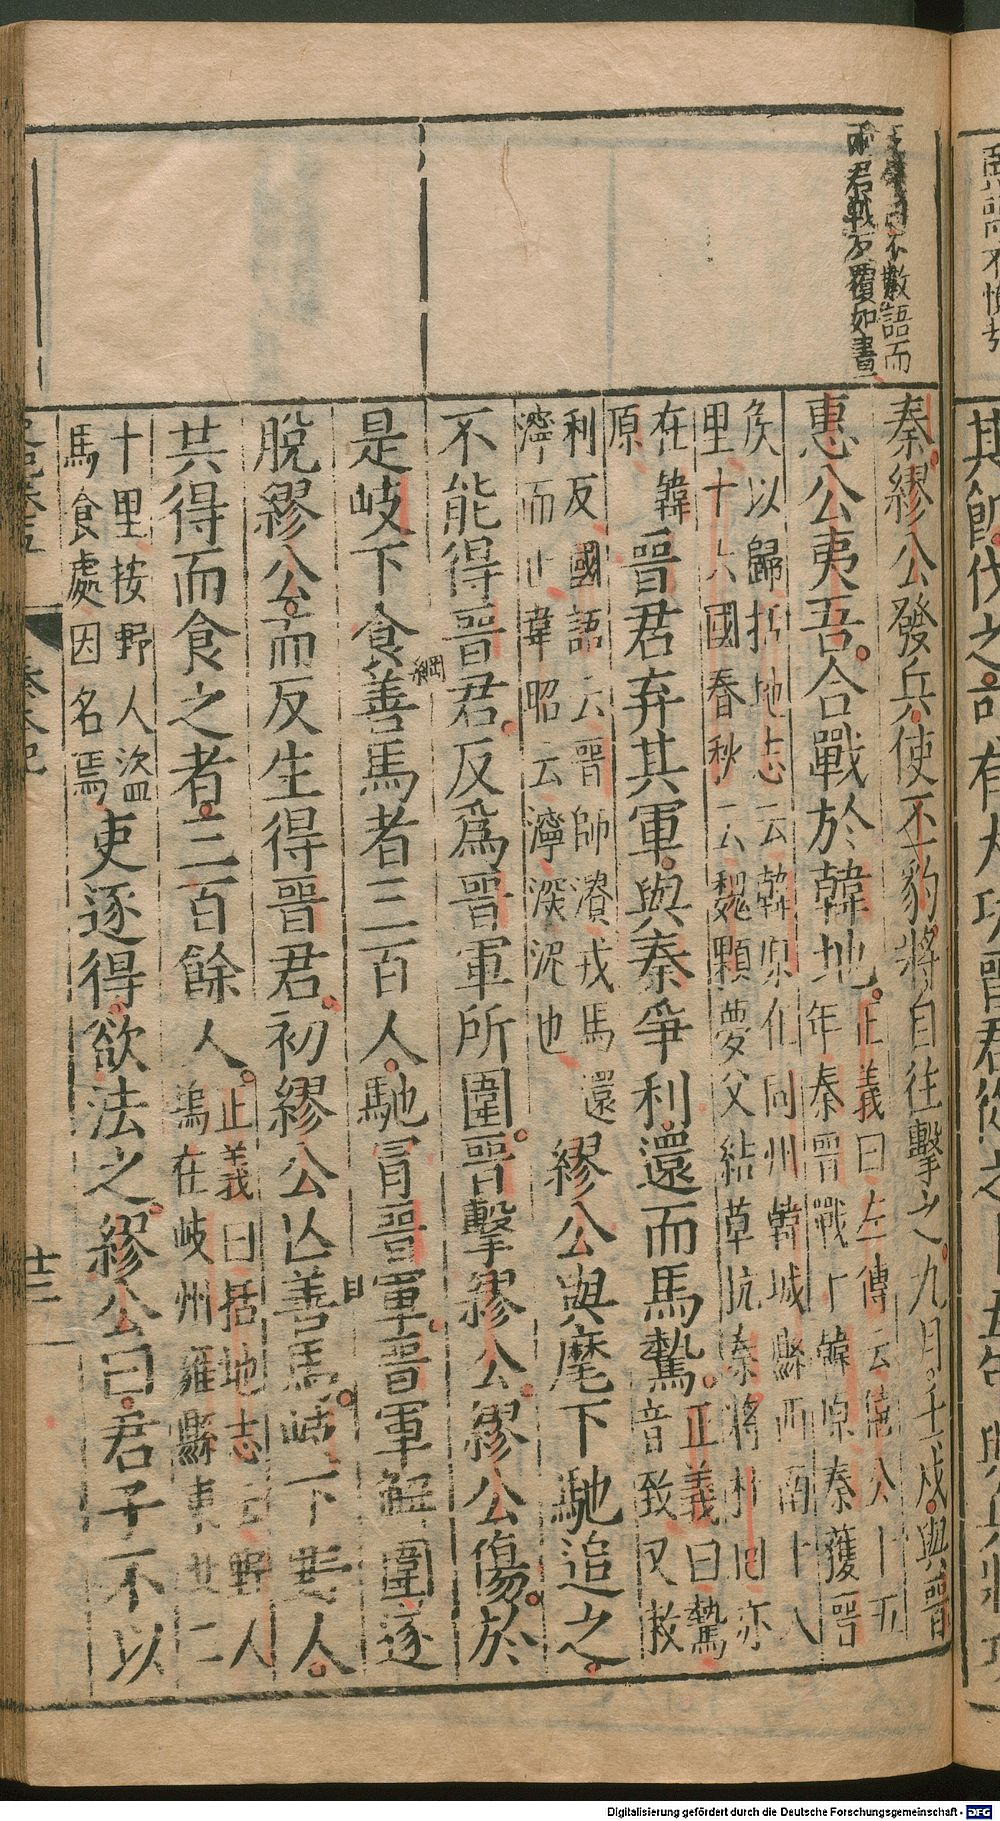 不數語而
兩君戰反覆如畫
秦繆公發兵使丕豹將自往擊之九月壬戌與晉
惠公夷吾合戰於韓地正義曰左傳云僖公十五
年秦晉戰于韓原秦獲晉
侯以歸括地志云韓原在同州韓城縣西南十八
里十六國春秋云魏顆夢父結草抗秦將杜回亦
在韓
原晉君弃其軍與秦爭利還而馬騺正義曰騺
音致又敕
利反國語云晉師潰戎馬還
濘而止韋昭云濘深泥也繆公與麾下馳追之
不能得晉君反爲晉軍所圍晉擊繆公繆公傷於
是岐下食善馬者三百人馳冐晉軍晉軍解圍遂
脫繆公而反生得晉君初繆公亾善馬岐下野人
共得而食之者三百餘人正義曰括地志云野人
塢在岐州雍縣東北二
十里按野人盜
馬食處因名焉吏逐得欲法之繆公曰君子不以
史記卷五 秦本紀 廿三
綱
目
其飢伐之
Digitalisierung gefördert durch die Deutsche Forschungsgemeinschaft - DFG